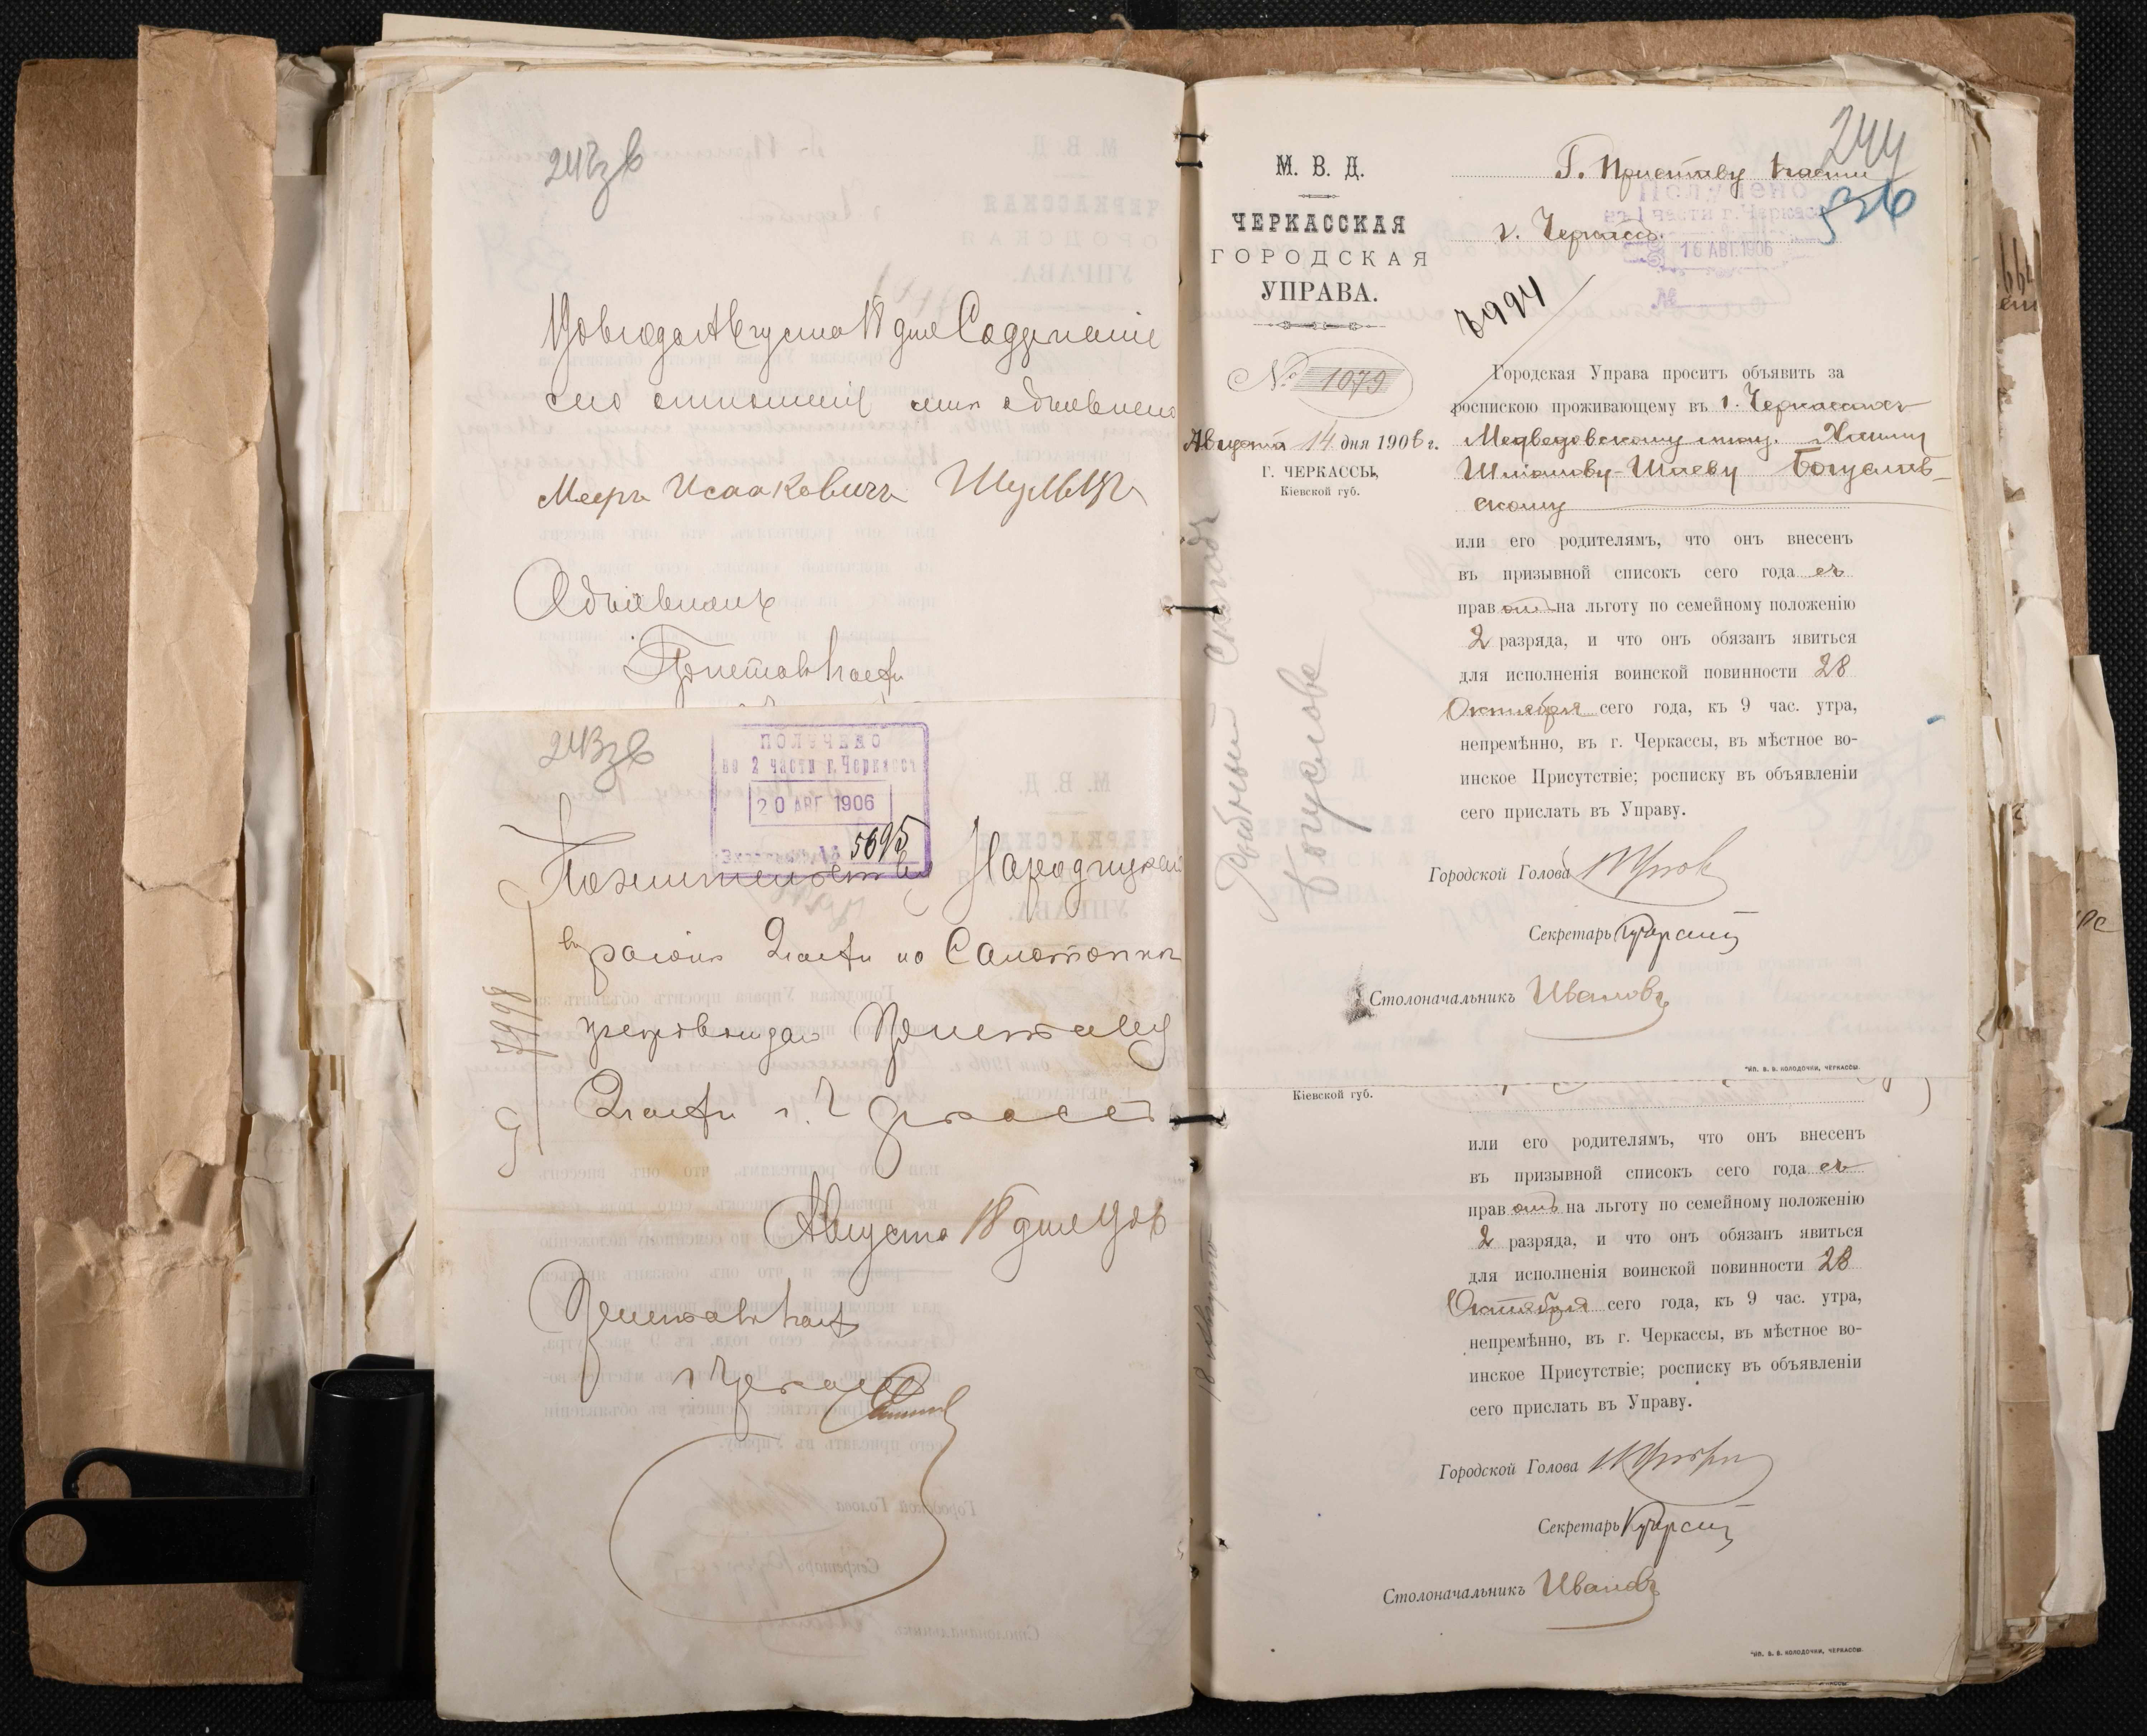 242 об
1906 года Августа 18 дня Содержаніе
сего отношенія мнѣ объявлено
Мееръ Исааковичъ Шульцъ
Объявилъ
Приставъ части
243 об
ПОЛУЧЕНО
во 2 части г. Черкассъ
20 АВГ 1906
5695
По жительству
въ районѣ 2 части по
препровождаю Приставу
2 части г. Черкассъ
7998
Августа 18 дня 1906
Приставъ части
г. Черкассъ
244
М. В. Д.
ЧЕРКАССКАЯ
ГОРОДСКАЯ
УПРАВА.
№ 1079
Августа 14 дня 1906 г.
Г. ЧЕРКАССЫ,
Кіевской губ.
Г. Приставу 1 части
г. Черкассъ.
Получено
въ 1 части г. Черкассъ
16 АВГ. 1906
№
7994
Городская Управа проситъ объявить за
роспискою проживающему въ г. Черкассахъ
Медведовскому мѣщ. Хаиму
Шліомову-Шаеву Богуслав-
скому
или его родителямъ, что онъ внесенъ
въ призывной списокъ сего года съ
правомъ на льготу по семейному положенію
2 разряда, и что онъ обязанъ явиться
для исполненія воинской повинности 28
Октября сего года, къ 9 час. утра,
непремѣнно, въ г. Черкассы, въ мѣстное во-
инское Присутствіе; росписку въ объявленіи
сего прислать въ Управу.
Городской Голова
Секретарь
Столоначальникъ Ивановъ
Тип. В. В. КОЛОДОЧКИ, ЧЕРКАССЫ.
Кіевской губ.
или его родителямъ, что онъ внесенъ
въ призывной списокъ сего года съ
правомъ на льготу по семейному положенію
2 разряда, и что онъ обязанъ явиться
для исполненія воинской повинности 28
Октября сего года, къ 9 час. утра,
непремѣнно, въ г. Черкассы, въ мѣстное во-
инское Присутствіе; росписку въ объявленіи
сего прислать въ Управу.
Городской Голова
Секретарь
Столоначальникъ Ивановъ
Тип. В. В. КОЛОДОЧКИ, ЧЕРКАССЫ.